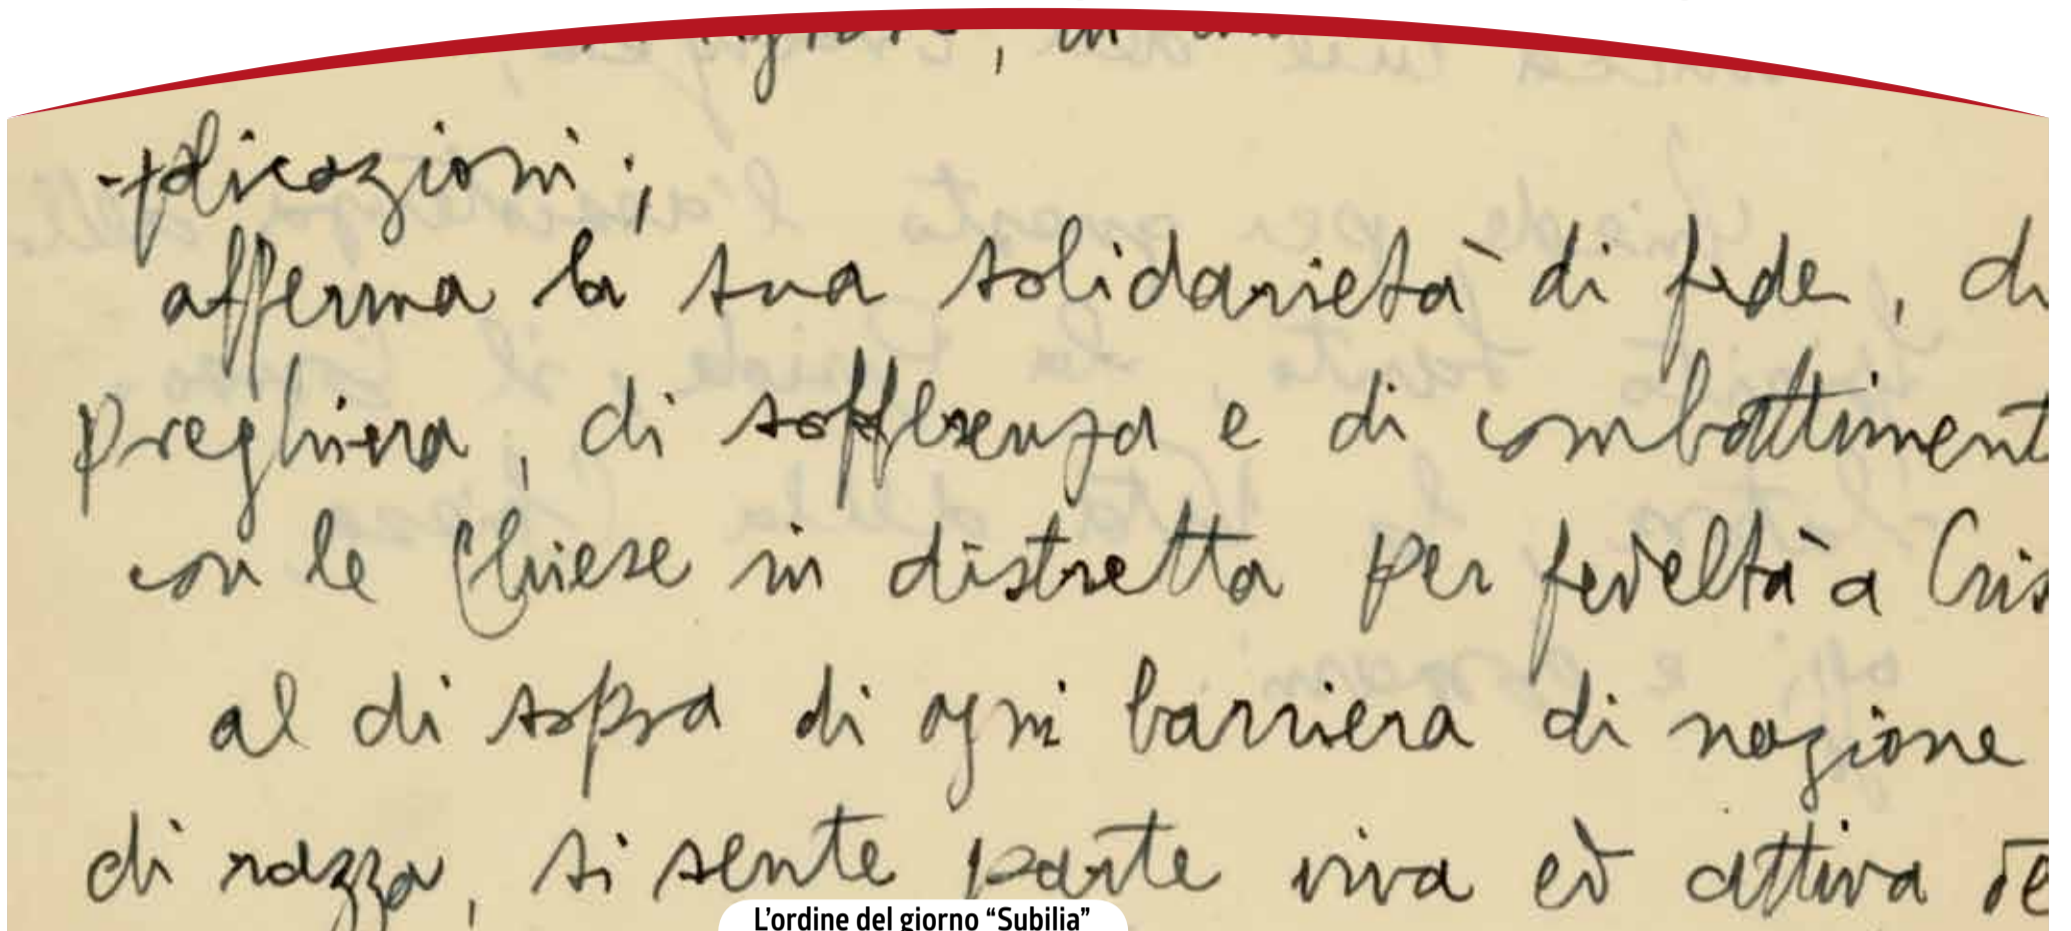 -plicazioni;
afferma la sua solidarietà di fede, di
preghiera, di sofferenza e di combattiment
con le Chiese in distretta per fedeltà a Cris
al di sopra di ogni barriera di nazione
di razza, si sente parte viva ed attiva de
L'ordine del giorno “Subilia”